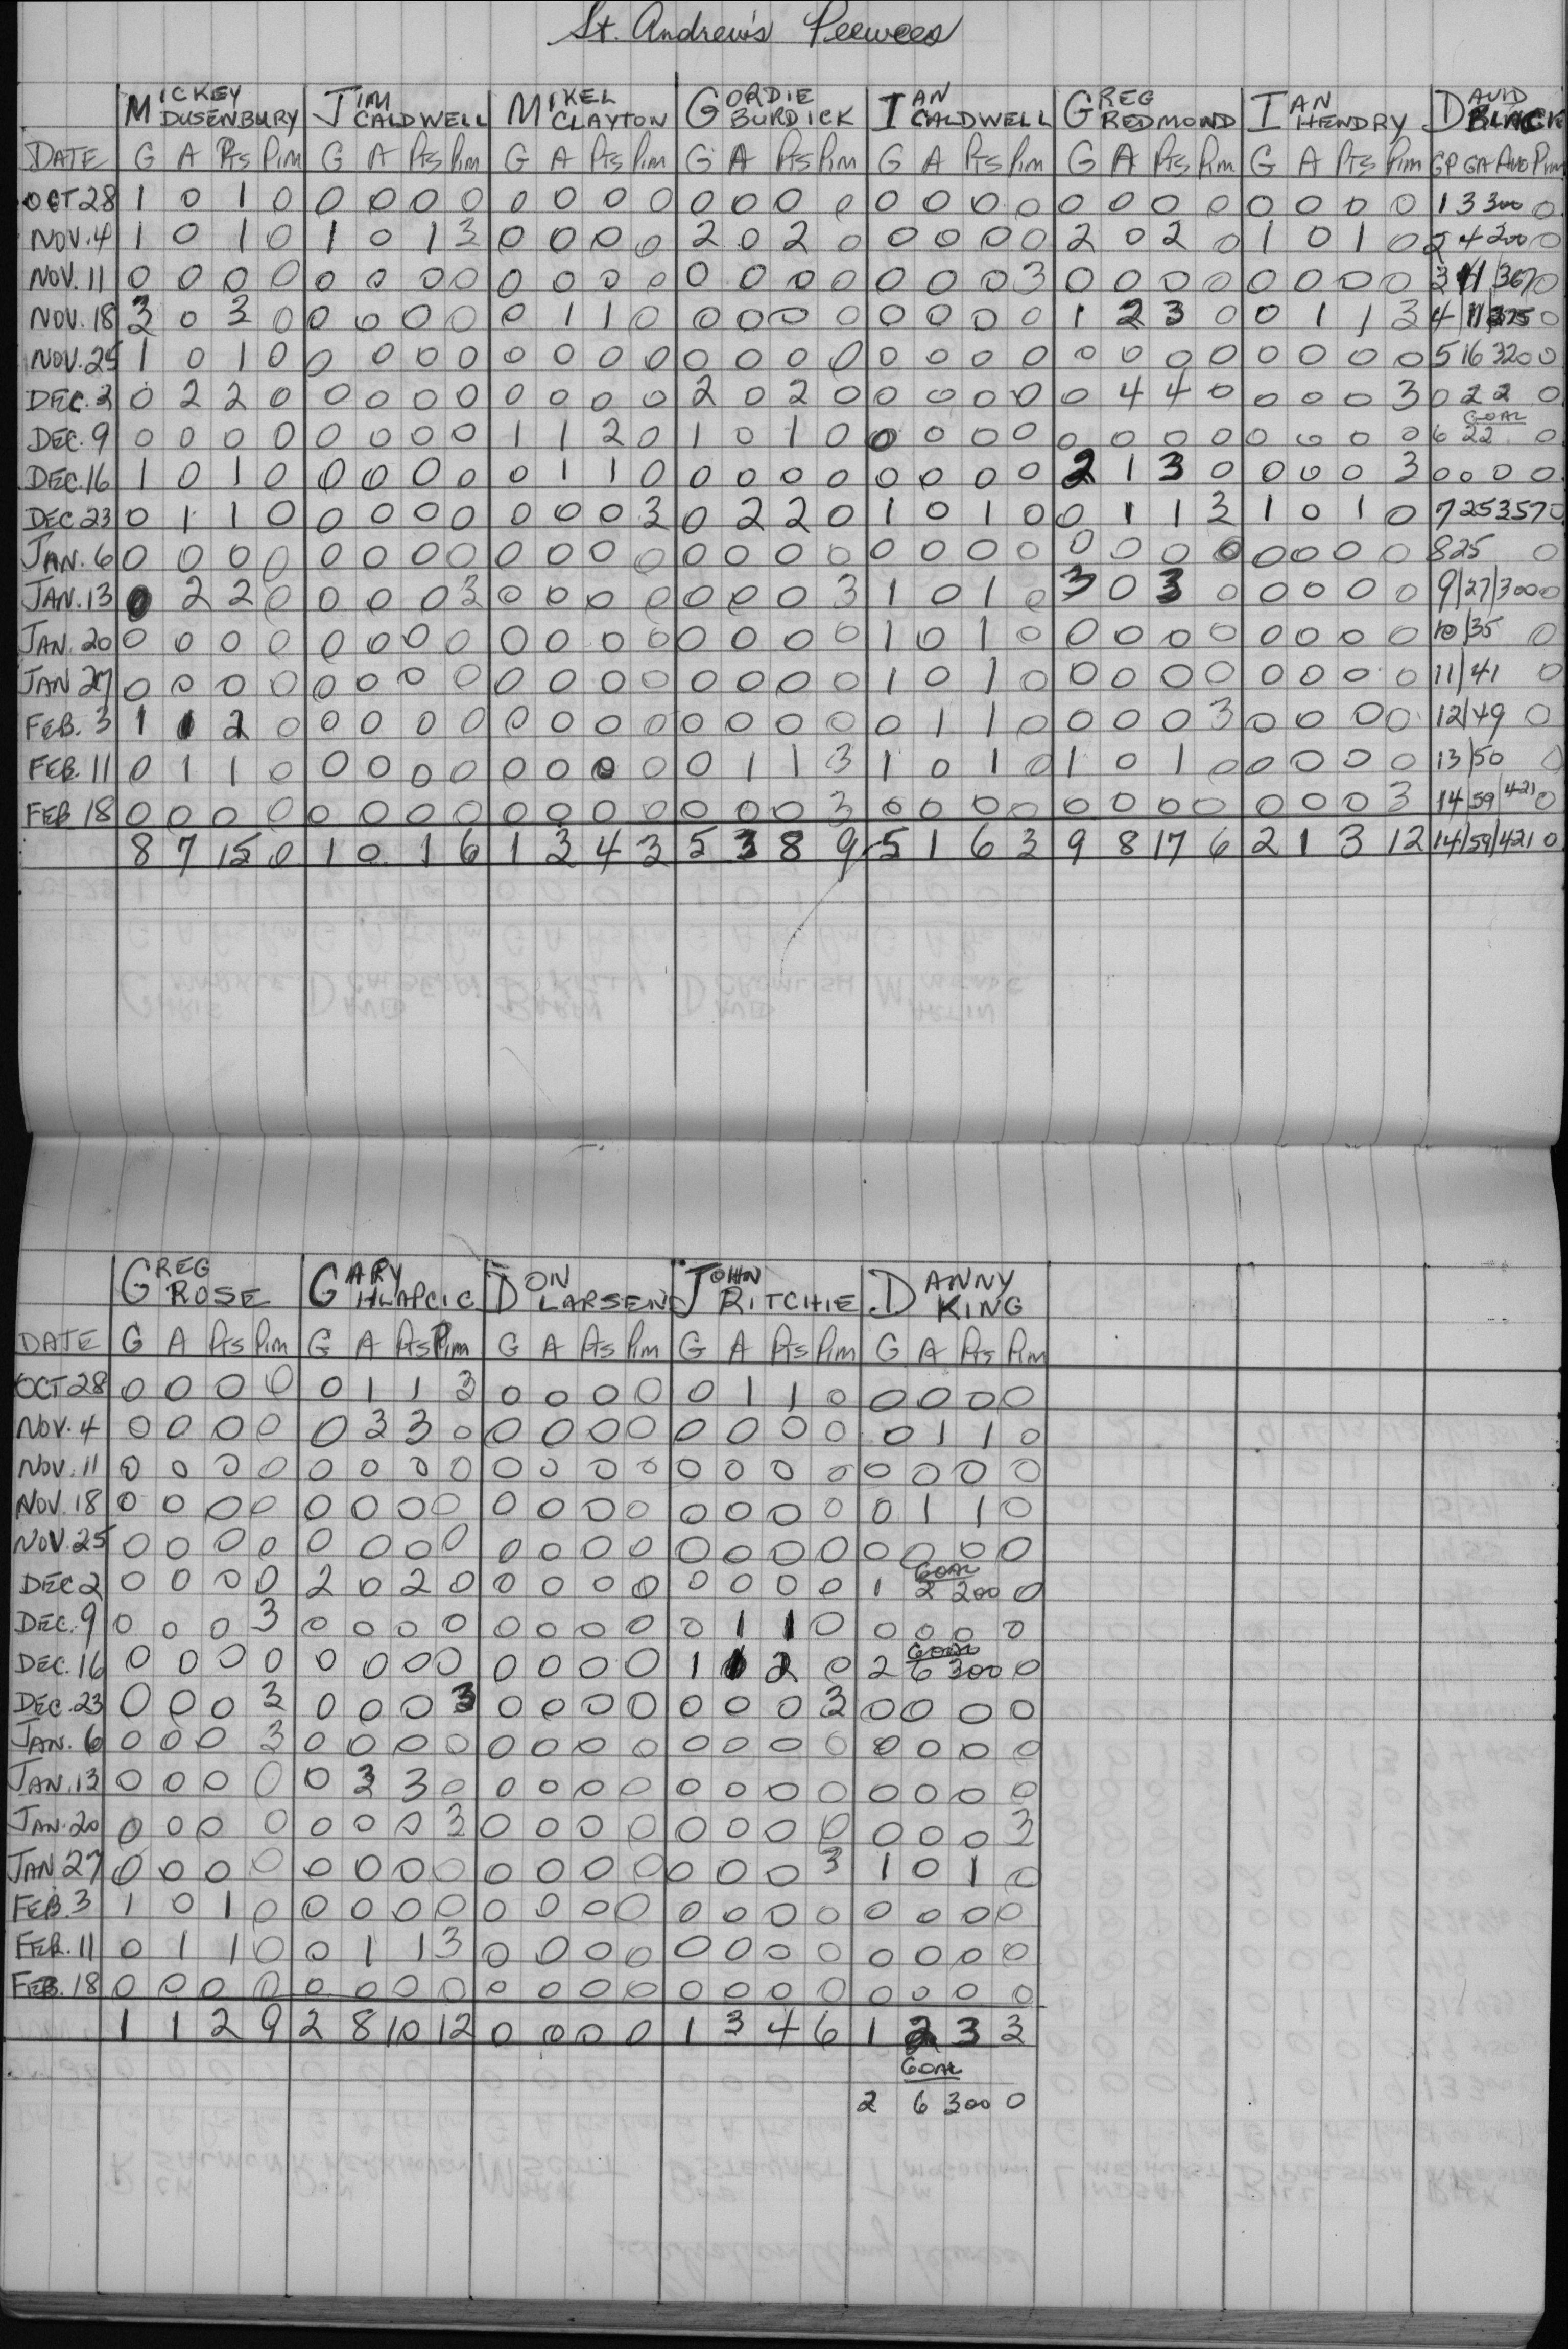 St. Andrew's Peewees
MICKEY DUSENBURY JIM CALDWELL MIKEL CLAYTON GORDIE BURDICK IAN CALDWELL GREG REDMOND IAN HENDRY DAVID BLACK
DATE G A Pts Pim G A Pts Pim G A Pts Pim G A Pts Pim G A Pts Pim G A Pts Pim G A Pts Pim GP GA AVG Pim
OCT 28 1 0 1 0 0 0 0 0 0 0 0 0 0 0 0 0 0 0 0 0 0 0 0 0 0 0 0 0 1 3 300 0
NOV. 4 1 0 1 0 1 0 1 3 0 0 0 0 2 0 2 0 0 0 0 0 2 0 2 0 1 0 1 0 2 4 200 0
NOV. 11 0 0 0 0 0 0 0 0 0 0 0 0 0 0 0 0 0 0 0 3 0 0 0 0 0 0 0 0 3 11 367 0
NOV. 18 3 0 3 0 0 0 0 0 0 1 1 0 0 0 0 0 0 0 0 0 1 2 3 0 0 1 1 3 4 11 275 0
NOV. 25 1 0 1 0 0 0 0 0 0 0 0 0 0 0 0 0 0 0 0 0 0 0 0 0 0 0 0 0 5 16 320 0
DEC. 2 0 2 2 0 0 0 0 0 0 0 0 0 2 0 2 0 0 0 0 0 0 4 4 0 0 0 0 3 0 2 2 0
GOAL
DEC. 9 0 0 0 0 0 0 0 0 1 1 2 0 1 0 1 0 0 0 0 0 0 0 0 0 0 0 0 0 6 22 0
DEC. 16 1 0 1 0 0 0 0 0 0 1 1 0 0 0 0 0 0 0 0 0 2 1 3 0 0 0 0 3 0 0 0 0
DEC 23 0 1 1 0 0 0 0 0 0 0 0 3 0 2 2 0 1 0 1 0 0 1 1 3 1 0 1 0 7 25 357 0
JAN. 6 0 0 0 0 0 0 0 0 0 0 0 0 0 0 0 0 0 0 0 0 0 0 0 0 0 0 0 0 8 25 0
JAN. 13 0 2 2 0 0 0 0 3 0 0 0 0 0 0 0 3 1 0 1 0 3 0 3 0 0 0 0 0 9 27 300 0
JAN. 20 0 0 0 0 0 0 0 0 0 0 0 0 0 0 0 0 1 0 1 0 0 0 0 0 0 0 0 0 10 35 0
JAN 27 0 0 0 0 0 0 0 0 0 0 0 0 0 0 0 0 1 0 1 0 0 0 0 0 0 0 0 0 11 41 0
FEB. 3 1 1 2 0 0 0 0 0 0 0 0 0 0 0 0 0 0 1 1 0 0 0 0 3 0 0 0 0 12 49 0
FEB. 11 0 1 1 0 0 0 0 0 0 0 0 0 0 1 1 3 1 0 1 0 1 0 1 0 0 0 0 0 13 50 0
FEB 18 0 0 0 0 0 0 0 0 0 0 0 0 0 0 0 3 0 0 0 0 0 0 0 0 0 0 0 3 14 59 421 0
8 7 15 0 1 0 1 6 1 3 4 3 5 3 8 9 5 1 6 3 9 8 17 6 2 1 3 12 14 59 421 0
GREG ROSE GARY HLAPCIC DON LARSEN JOHN RITCHIE DANNY KING
DATE G A Pts Pim G A Pts Pim G A Pts Pim G A Pts Pim G A Pts Pim
OCT 28 0 0 0 0 0 1 1 3 0 0 0 0 0 1 1 0 0 0 0 0
NOV. 4 0 0 0 0 0 3 3 0 0 0 0 0 0 0 0 0 0 1 1 0
NOV. 11 0 0 0 0 0 0 0 0 0 0 0 0 0 0 0 0 0 0 0 0
NOV. 18 0 0 0 0 0 0 0 0 0 0 0 0 0 0 0 0 0 1 1 0
NOV. 25 0 0 0 0 0 0 0 0 0 0 0 0 0 0 0 0 0 0 0 0
GOAL
DEC 2 0 0 0 0 2 0 2 0 0 0 0 0 0 0 0 0 1 2 200 0
DEC. 9 0 0 0 3 0 0 0 0 0 0 0 0 0 1 1 0 0 0 0 0
GOAL
DEC. 16 0 0 0 0 0 0 0 0 0 0 0 0 1 1 2 0 2 6 300 0
DEC. 23 0 0 0 3 0 0 0 3 0 0 0 0 0 0 0 3 0 0 0 0
JAN. 6 0 0 0 3 0 0 0 0 0 0 0 0 0 0 0 0 0 0 0 0
JAN. 13 0 0 0 0 0 3 3 0 0 0 0 0 0 0 0 0 0 0 0 0
JAN. 20 0 0 0 0 0 0 0 3 0 0 0 0 0 0 0 0 0 0 0 3
JAN 27 0 0 0 0 0 0 0 0 0 0 0 0 0 0 0 3 1 0 1 0
FEB. 3 1 0 1 0 0 0 0 0 0 0 0 0 0 0 0 0 0 0 0 0
FEB. 11 0 1 1 0 0 1 1 3 0 0 0 0 0 0 0 0 0 0 0 0
FEB. 18 0 0 0 0 0 0 0 0 0 0 0 0 0 0 0 0 0 0 0 0
1 1 2 9 2 8 10 12 0 0 0 0 1 3 4 6 1 2 3 3
GOAL
2 6 300 0